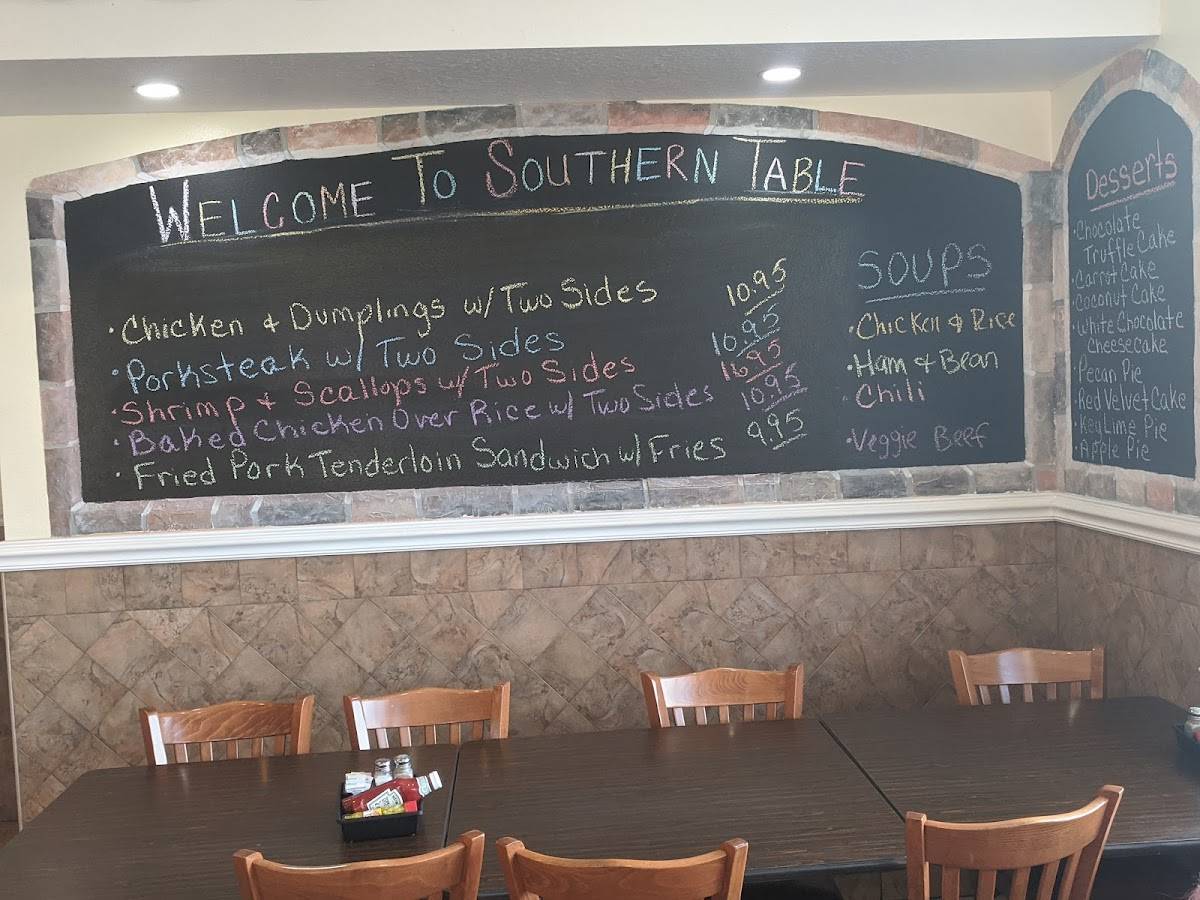 WELCOME TO SOUTHERN TABLE
• Chicken & Dumplings w/ Two Sides 10.95
• Porksteak w/ Two Sides 16.95
• Shrimp & Scallops w/ Two Sides 16.95
• Baked Chicken Over Rice w/ Two Sides 10.95
• Fried Pork Tenderloin Sandwich w/ Fries 9.95
SOUPS
• Chicken & Rice
• Ham & Bean
• Chili
• Veggie Beef
Desserts
• Chocolate
Truffle Cake
• Carrot Cake
• Coconut Cake
• White Chocolate
Cheesecake
• Pecan Pie
• Red Velvet Cake
• Key Lime Pie
• Apple Pie
HEINZ